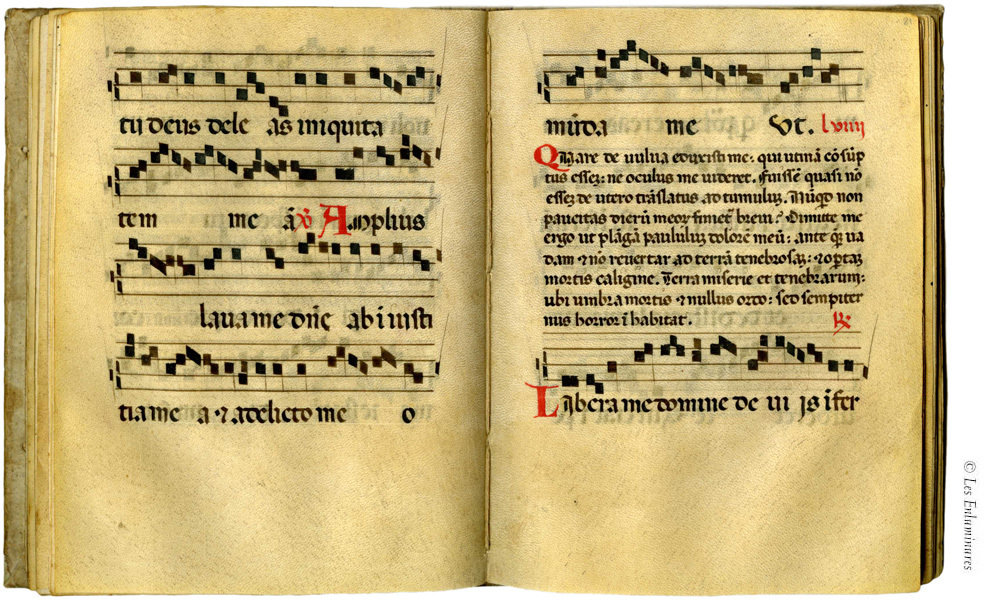 tij deus dele as iniquita
tem me ā ꝟ Amplius
laua me dñe ab iniusti
tia me a ⁊ a delicto me o
mūda me Vt. l viiii
Quare de uulua eduxisti me: qui utinā cōsūp
tus essez: ne oculus me uideret. Fuissē quasi nō
essez de utero trāslatus ad tumuluz. Nūqd non
paucitas dierū meoꝝ finiet breui? Dimitte me
ergo ut plāgā paululuz dolorē meū: ante qz ua
dam ⁊ nō reuertar ad terrā tenebrosaz: ⁊ opertaz
mortis caligine. Terra miserie et tenebrarum:
ubi umbra mortis ⁊ nullus ordo: sed sempiter
nus horror ī habitat. ℟
Libera me domine de ui is īfer
© Les Enluminures